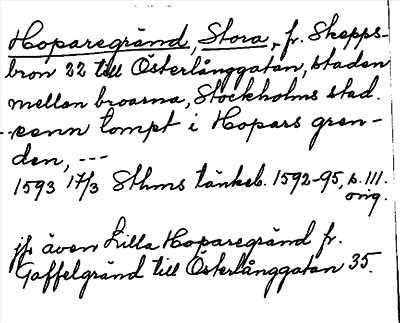 Hoparegränd, Stora, fr. Skepps-
bron 22 till Österlånggatan, staden
mellan broarna, Stockholms stad.
--eenn tompt i Hopars gren-
den, ---
1593 17/3 Sthms tänkeb. 1592-95, s. 111.
orig.
jfr även Lilla Hoparegränd fr.
Gaffelgränd till Österlånggatan 35.